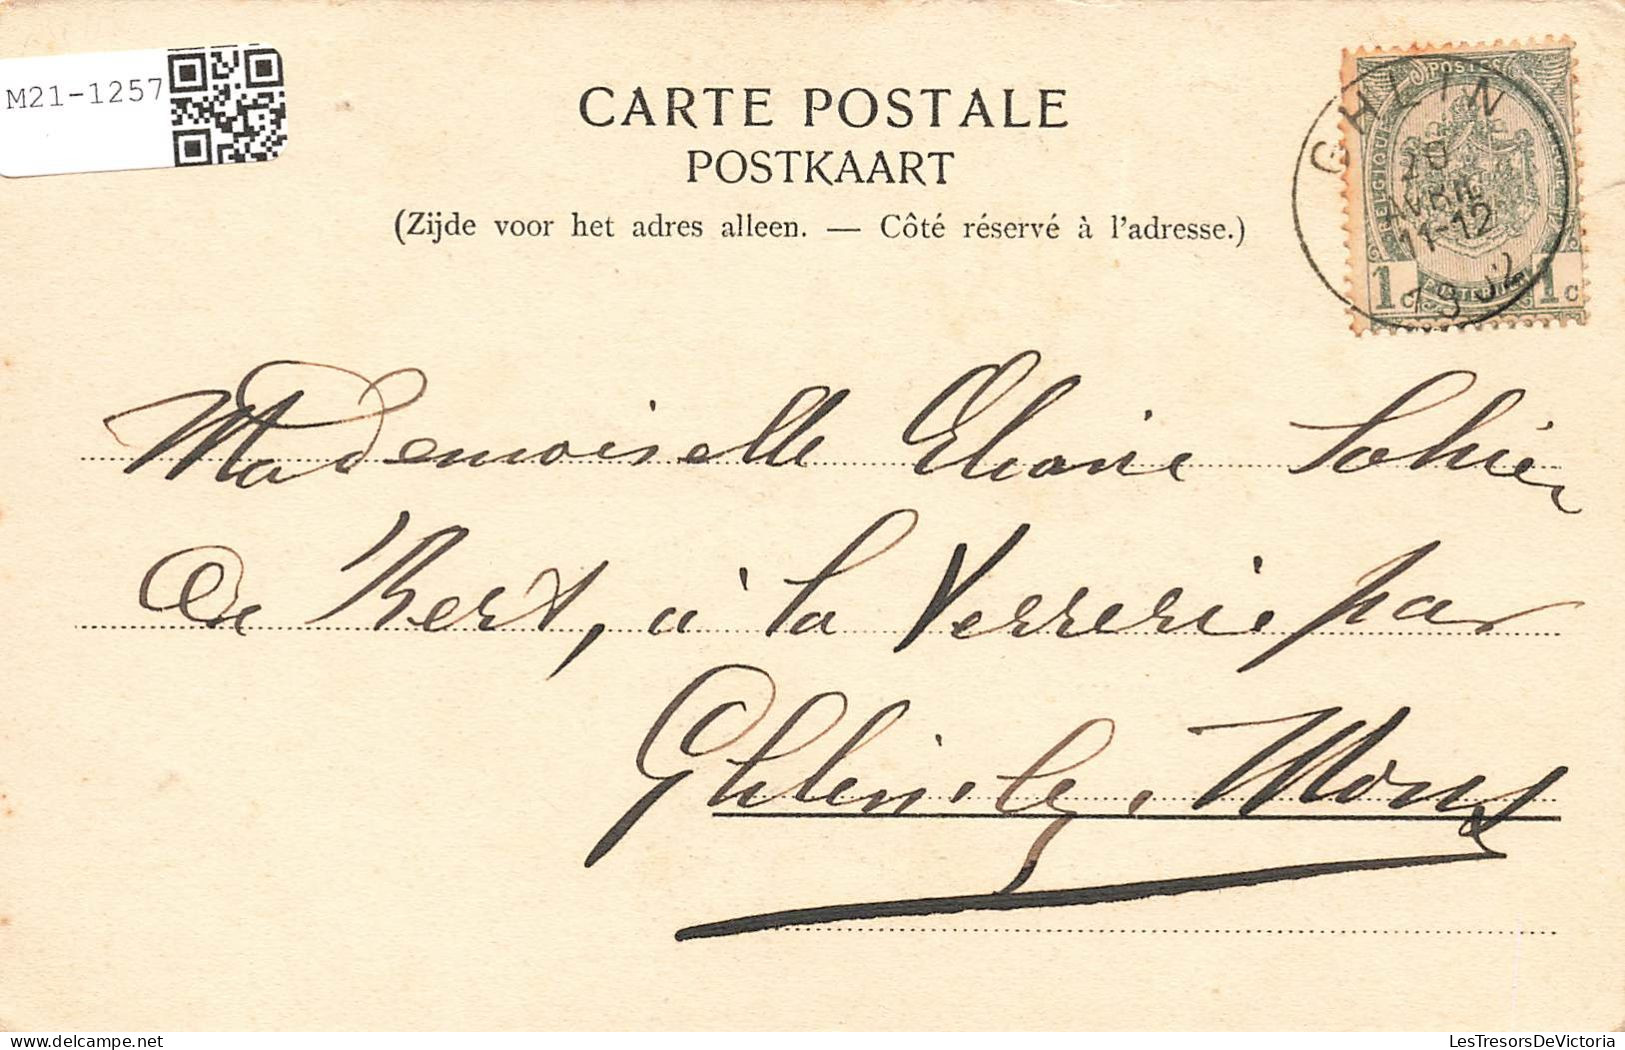 M21-1257
CARTE POSTALE
POSTKAART
(Zijde voor het adres alleen. — Côté réservé à l'adresse.)
POSTES
BELGIQUE
1c 1c
GHLIN
20
AVRIL
11-12
Mademoiselle Sohier
De Kert, à la Verrerie par
Ghlin-lez-Mons
LesTresorsDeVictoria